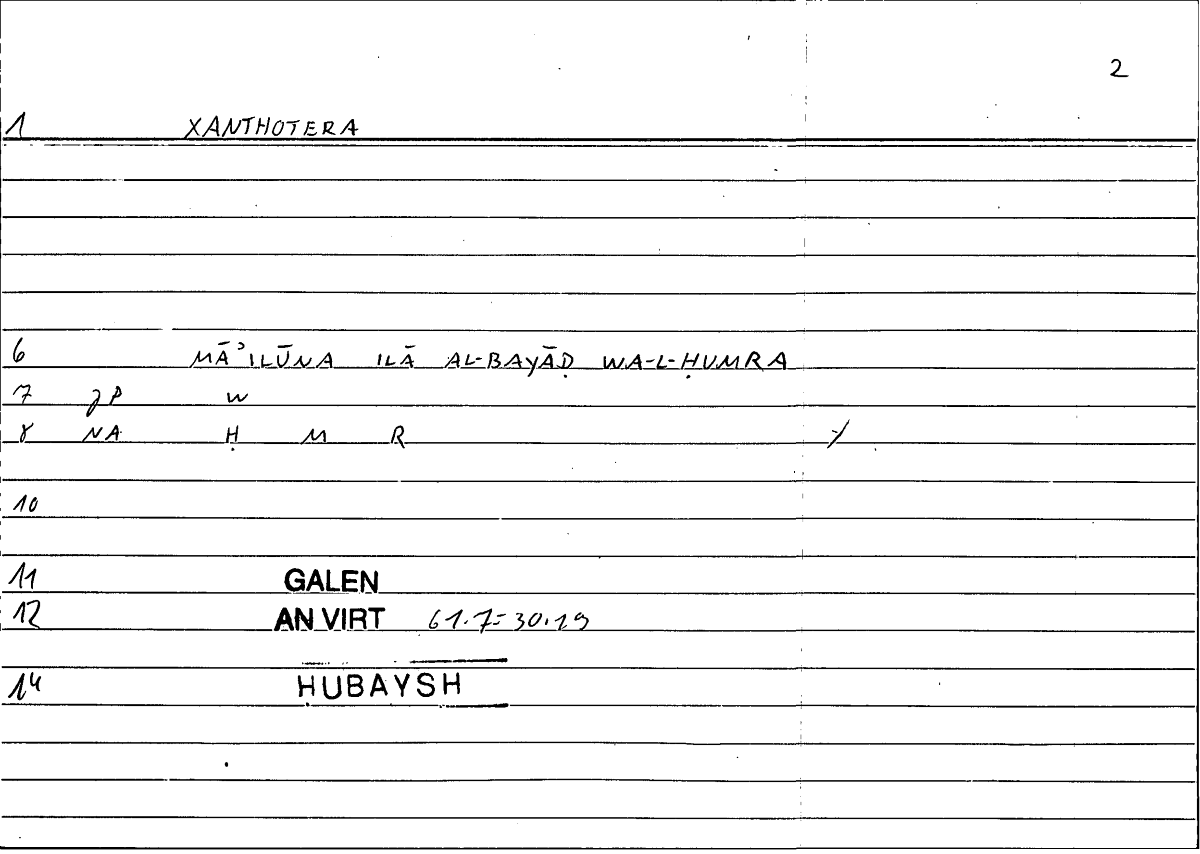 2
1 XANTHOTERA
6 MĀʾILŪNA ILĀ AL-BAYĀḌ WA-L-ḤUMRA
7 JP W
8 NA Ḥ M R
10
11 GALEN
12 AN VIRT 61.7=30.19
14 ḤUBAYSH